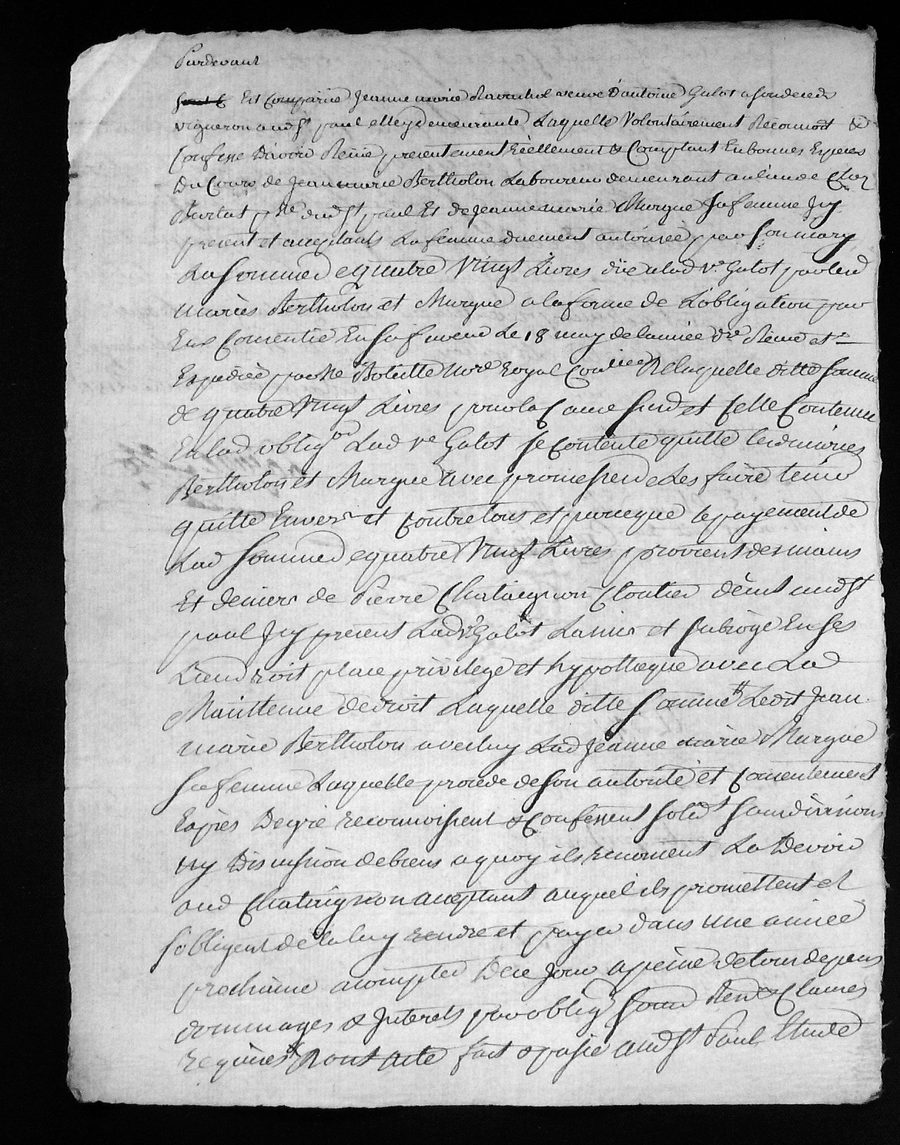 Pardevant
Est Comparüe Jeanne marie veuve d'antoine Galot
vigneron aud St paul et ley demeurante Laquelle Volontairement Reconnoit &
Confesse D'avoir Reçeu presentement Réellement & Comptant En bonnes Especes
Du Cours de Jean marie Bertholon Laboureur demeurant au lieu de
dud St paul Et de Jeanne marie Murgue Sa femme Icy
present et acceptants La femme duement autorisée par Son mary
La Somme de quatre Vingt Livres düe a lad ve Galot par led
mariés Bertholon et Murgue a la forme de L'obligation par
Eux Consentie En Sa faveur Le 18 may de lannée Re et
Expediée par Me Notre Royal De laquelle ditte Somme
de quatre Vingt Livres pour la Cause Susd et Celle Contenue
En lad oblig.on Lad ve Galot Se Contente quitte les d mariés
Bertholon et Murgue avec promesse de Les faire tenir
quitte Envers et Contre tous et parceque le payement de
Lad Somme de quatre Vingt Livres provient des mains
Et deniers de Pierre Chataignon Cloutier aud St
paul Icy present Lad ve Galot La mis et Subroge En Ses
Lieu droit place privilege et hypotheque avec La
Maintenue de droit Laquelle ditte Somme Ledit Jean
marie Bertholon avec luy Lad Jeanne marie Murgue
Sa femme Laquelle procede de Son autorité et Consentement
Expres De gré reconnoissent & Confessent Solid.t Sans division
ny Discussion de biens a quoy ils renoncent La Devoir
aud Chataignon acceptant auquel ils promettent et
S'obligent de la luy rendre et payer Dans une année
prochaine a compter De ce Jour a peine de tous depens
dommages & Interets par oblig.on Soum Renon.s & Clauses
requises Dont acte fait & passé aud St Paul Etude